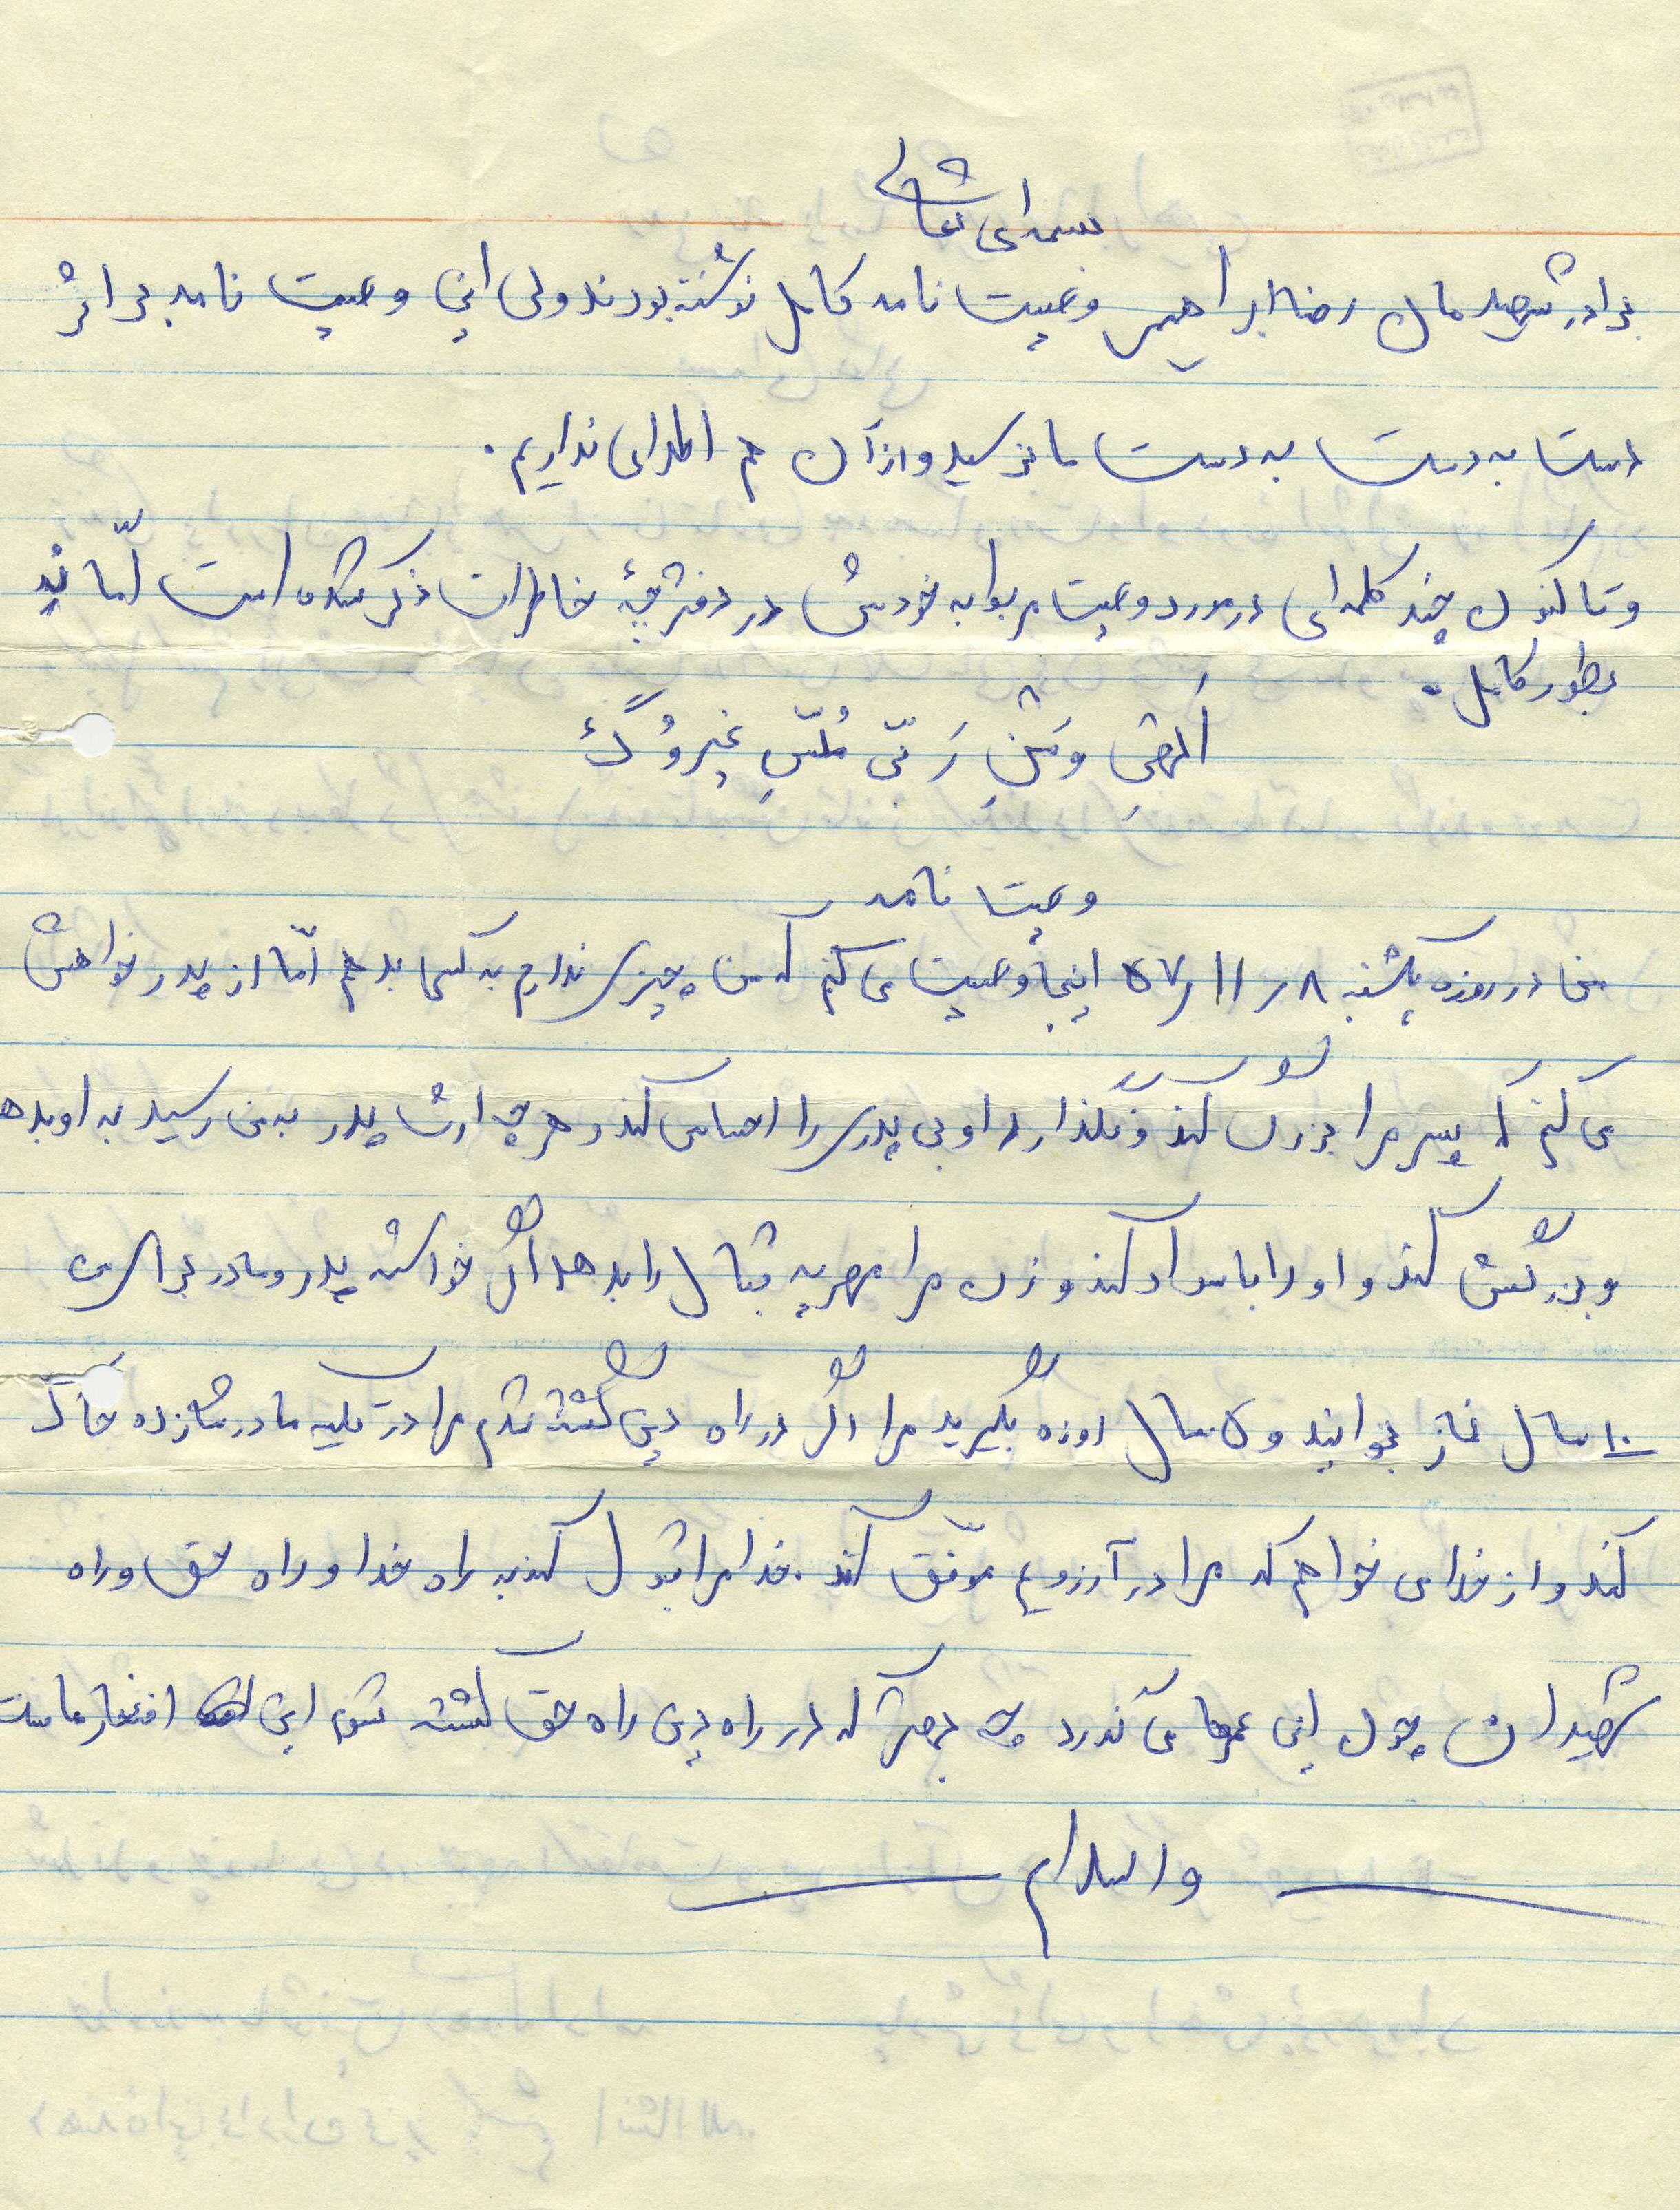 بسمه‌ای تعالی
برادر شهیدمان رضا ابراهیمی وصیت نامه کامل نوشته بودند ولی این وصیت نامه بر اثر
دست به دست به دست ما نرسید و از آن هم اطلاعی نداریم.
و تا کنون چند کلمه‌ای در مورد وصیت مربوط به خودش در دفترچهٔ خاطرات ذکر شده است امّا نه
بطور کامل.
الهی رَبّی غیرُک
وصیت نامه
من در روزه یکشنبه ۸ ر ۱۱ ر ۵۷ اینجا وصیت می کنم که من چیزی ندارم به کسی بدهم امّا از پدر خواهش
می کنم که پسر مرا بزرگ کند و نگذارد او بی پدری را احساس کند و هر چه ارث پدر به من رسید به او بدهد
و بزرگش کند و او را با سواد کند و زن مرا مهریه را بدهد اگر خواسته پدر و مادر برای من
۱۰ سال نماز بخوانید و ۵ سال روزه بگیرید مرا اگر در راه دین کشته شدم مرا در تکیه مادر شازده خاک
کند و از خدا می خواهم که مرا در آرزویم موّفق کند. خدا مرا قبول کند به راه خدا و راه حق و راه
شهیدان چون این عمرها می گذرد چه بهتر که در راه دین راه حق کشته شوم این افتخار ماست
والسلام